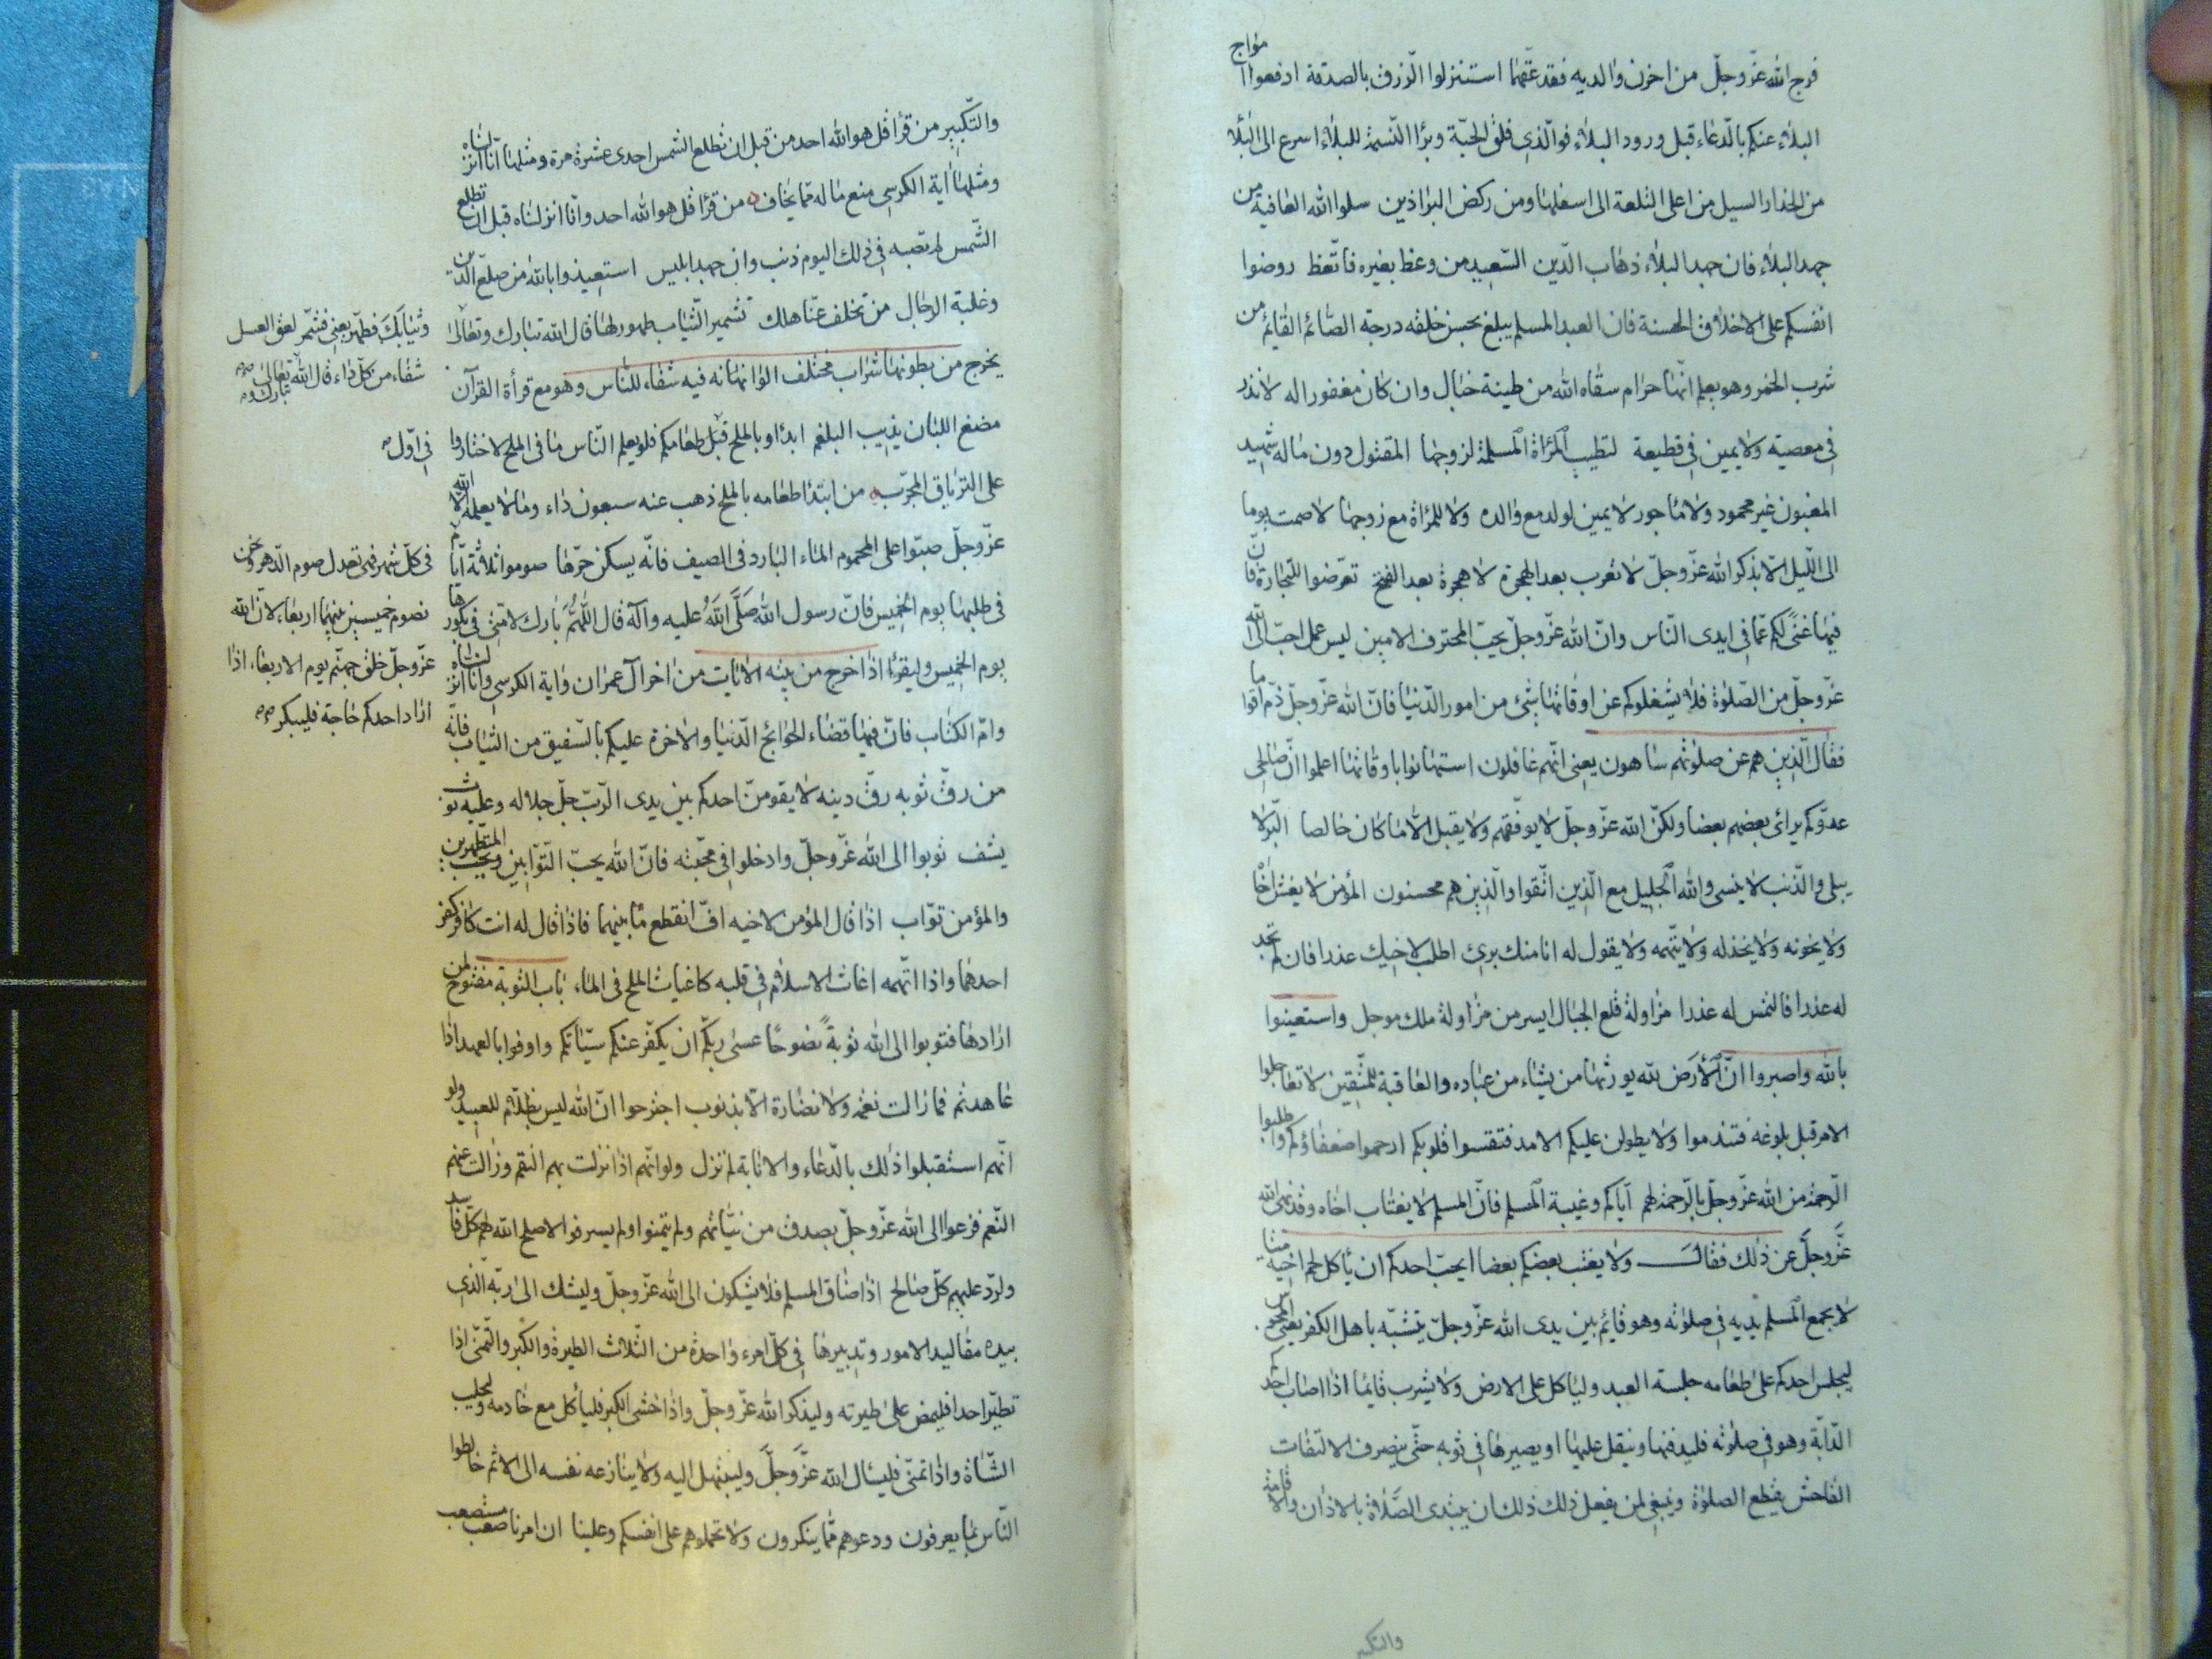 فرج الله عزّ وجلّ من احزن والديه فقد عقّهما استنزلوا الرّزق بالصدقة ادفعوا امواج
البلاء عنكم بالدّعاء قبل ورود البلاء فوالّذي فلق الحبّة وبرا النّسمة للبلاء اسرع الى البلا
من انحدار السيل من اعلى التلعة الى اسفلها ومن ركض البراذين سلوا الله العافية من
جهد البلاء فان جهد البلاء ذهاب الدّين السّعيد من وعظ بغيره فاتّعظ روضوا
انفسكم على الاخلاق الحسنة فان العبد المسلم يبلغ بحسن خلقه درجة الصّائم القايم من
شرب الخمر وهو يعلم انّها حرام سقاه الله من طينة خبال وان كان مغفورا له لا نذر
في معصية ولا يمين في قطيعة لتطيب المرأة المسلمة لزوجها المقتول دون ماله شهيد
المغبون غير محمود ولا مأجور لا يمين لولد مع والده ولا للمرأة مع زوجها لا صمت يوما
الى اللّيل الّا بذكر الله عزّ وجلّ لا تعرب بعد الهجرة لا هجرة بعد الفتح تعرّضوا للتجارة فانّ
فيها غنىً لكم عمّا في ايدى النّاس وانّ الله عزّ وجلّ يحبّ المحترف الامين ليس عمل احبّ الى الله
عزّ وجلّ من الصّلوة فلا يشغلوكم عن اوقاتها شئ من امور الدّنيا فانّ الله عزّ وجلّ ذمّ اقواما
فقال الّذين هم عن صلوتهم ساهون يعنى انّهم غافلون استهانوا باوقاتها اعلموا انّ صالحى
عدوّكم يرائى بعضهم بعضا ولكنّ الله عزّ وجلّ لا يوفّقهم ولا يقبل الّا ما كان خالصا البرّ لا
يبلى والذّنب لا ينسى والله الجليل مع الّذين اتّقوا والّذين هم محسنون المؤمن لا يغش اخاه
ولا يخونه ولا يخذله ولا يتّهمه ولا يقول له انا منك برئ اطلب لاخيك عذرا فان لم تجد
له عذرا فالتمس له عذرا مزاولة قلع الجبال ايسر من مزاولة ملك موجل واستعينوا
بالله واصبروا انّ الأرض لله يورثها من يشاء من عباده والعاقبة للمتّقين لا تعاجلوا
الامر قبل بلوغه فتندموا ولا يطولن عليكم الامد فتقسوا قلوبكم ارحموا ضعفاؤكم واطلبوا
الرّحمة من الله عزّ وجلّ بالرّحمة لهم ايّاكم وغيبة المسلم فانّ المسلم لا يغتاب اخاه وقد نهى الله
عزّ وجلّ عن ذلك فقال ولا يغتب بعضكم بعضا ايحبّ احدكم ان يأكل لحم اخيه ميتا
لا يجمع المسلم يديه في صلوته وهو قايم بين يدى الله عزّ وجلّ يتشبّه باهل الكفر يعنى المجوس
ليجلس احدكم على طعامه جلسة العبد وليأكل على الارض ولا يشرب قايما اذا اصاب احدكم
الدّابّة وهو في صلوته فليدفنها ويتفل عليها او يصيرها في ثوبه حتّى ينصرف الالتفات
الفاحش يقطع الصلوة وينبغي لمن يفعل ذلك ذلك ان يبتدى الصّلاة بالاذان والاقامة
والتكبير
والتّكبير من قرأ قل هو الله احد من قبل ان تطلع الشمس احدى عشرة مرة ومثلها انّا انزلناه
ومثلها اية الكرسي منع ماله ممّا يخاف من قرأ قل هو الله احد وانّا انزلناه قبل ان تطلع
الشّمس لم تصبه في ذلك اليوم ذنب وان جهد ابليس استعيذوا بالله من ضلع الدّين
وغلبة الرجال من تخلف عنّا هلك تشمير الثّياب طهور لها قال الله تبارك وتعالى
وَثِيَابَكَ فطهّر يعنى فشمّر لعق العسل
شفاء من كلّ داء قال الله تبارك وتعالى
يخرج من بطونها شراب مختلف الوانها انه فيه شفاء للنّاس وهو مع قرأة القرآن
مضغ اللبان يذيب البلغم ابدأوا بالملح قبل طعامكم فلو يعلم النّاس ما في الملح لاختاروا
في اوّل
على الترياق المجرّب من ابتدأ طعامه بالملح ذهب عنه سبعون داء وما لا يعلمه الّا الله
عزّ وجلّ صبّوا على المحموم الماء البارد في الصيف فانّه يسكن حرّها صوموا ثلاثة ايّام
في كلّ شهر فهى تعدل صوم الدّهر ونحن
نصوم خميسين بينهما اربعاء لانّ الله
عزّ وجلّ خلق جهنّم يوم الاربعاء اذا
اراد احدكم حاجة فليبكر
في طلبها يوم الخميس فانّ رسول الله صلّى الله عليه وآله قال اللّهمّ بارك لامّتى في بكورها
يوم الخميس وليقرأ اذا خرج من بيته الايات من اخر آل عمران واية الكرسي وانّا انزلناه
وامّ الكتاب فانّ فيها قضاء الحوائج الدّنيا والاخرة عليكم بالسّفيق من الثياب فانّه
من رقّ ثوبه رقّ دينه لا يقومنّ احدكم بين يدى الرّبّ جلّ جلاله وعليه ثوب
يشف توبوا الى الله عزّ وجلّ وادخلوا في محبّته فانّ الله يحبّ التّوّابين ويحبّ المتطهّرين
والمؤمن توّاب اذا قال المؤمن لاخيه افّ انقطع ما بينهما فاذا قال له انت كافر كفر
احدهما واذا اتّهمه اغاث الاسلام في قلبه كاغياث الملح في الماء باب التوبة مفتوح لمن
ارادها فتوبوا الى الله توبةً نصوحًا عسى ربّكم ان يكفّر عنكم سيّئاتكم واوفوا بالعهد اذا
عاهدتم فما زالت نعمة ولا نضارة الّا بذنوب اجترحوا انّ الله ليس بظلّام للعبيد ولو
انّهم استقبلوا ذلك بالدّعاء والانابة لم تنزل ولو انّهم اذا نزلت بهم النقم وزالت عنهم
النّعم فزعوا الى الله عزّ وجلّ بصدق من نيّاتهم ولم يتمنوا ولم يسرفوا لاصلح الله لهم كلّ فاسد
ولردّ عليهم كلّ صالح اذا ضاق المسلم فلا يشكون الى الله عزّ وجلّ وليشك الى ربّه الّذى
بيده مقاليد الامور وتدبيرها في كلّ امرء واحدة من الثّلاث الطيرة والكبر والتّمنّى اذا
تطيّر احدا فليمض على طيرته وليذكر الله عزّ وجلّ واذا خشى الكبر فليأكل مع خادمه وليحلب
الشّاة واذا تمنّى فليسأل الله عزّ وجلّ وليبتهل اليه ولا ينازعه نفسه الى الاثم خالطوا
النّاس بما يعرفون ودعوهم ممّا ينكرون ولا تحملوهم على انفسكم وعلينا ان امرنا صعب مستصعب